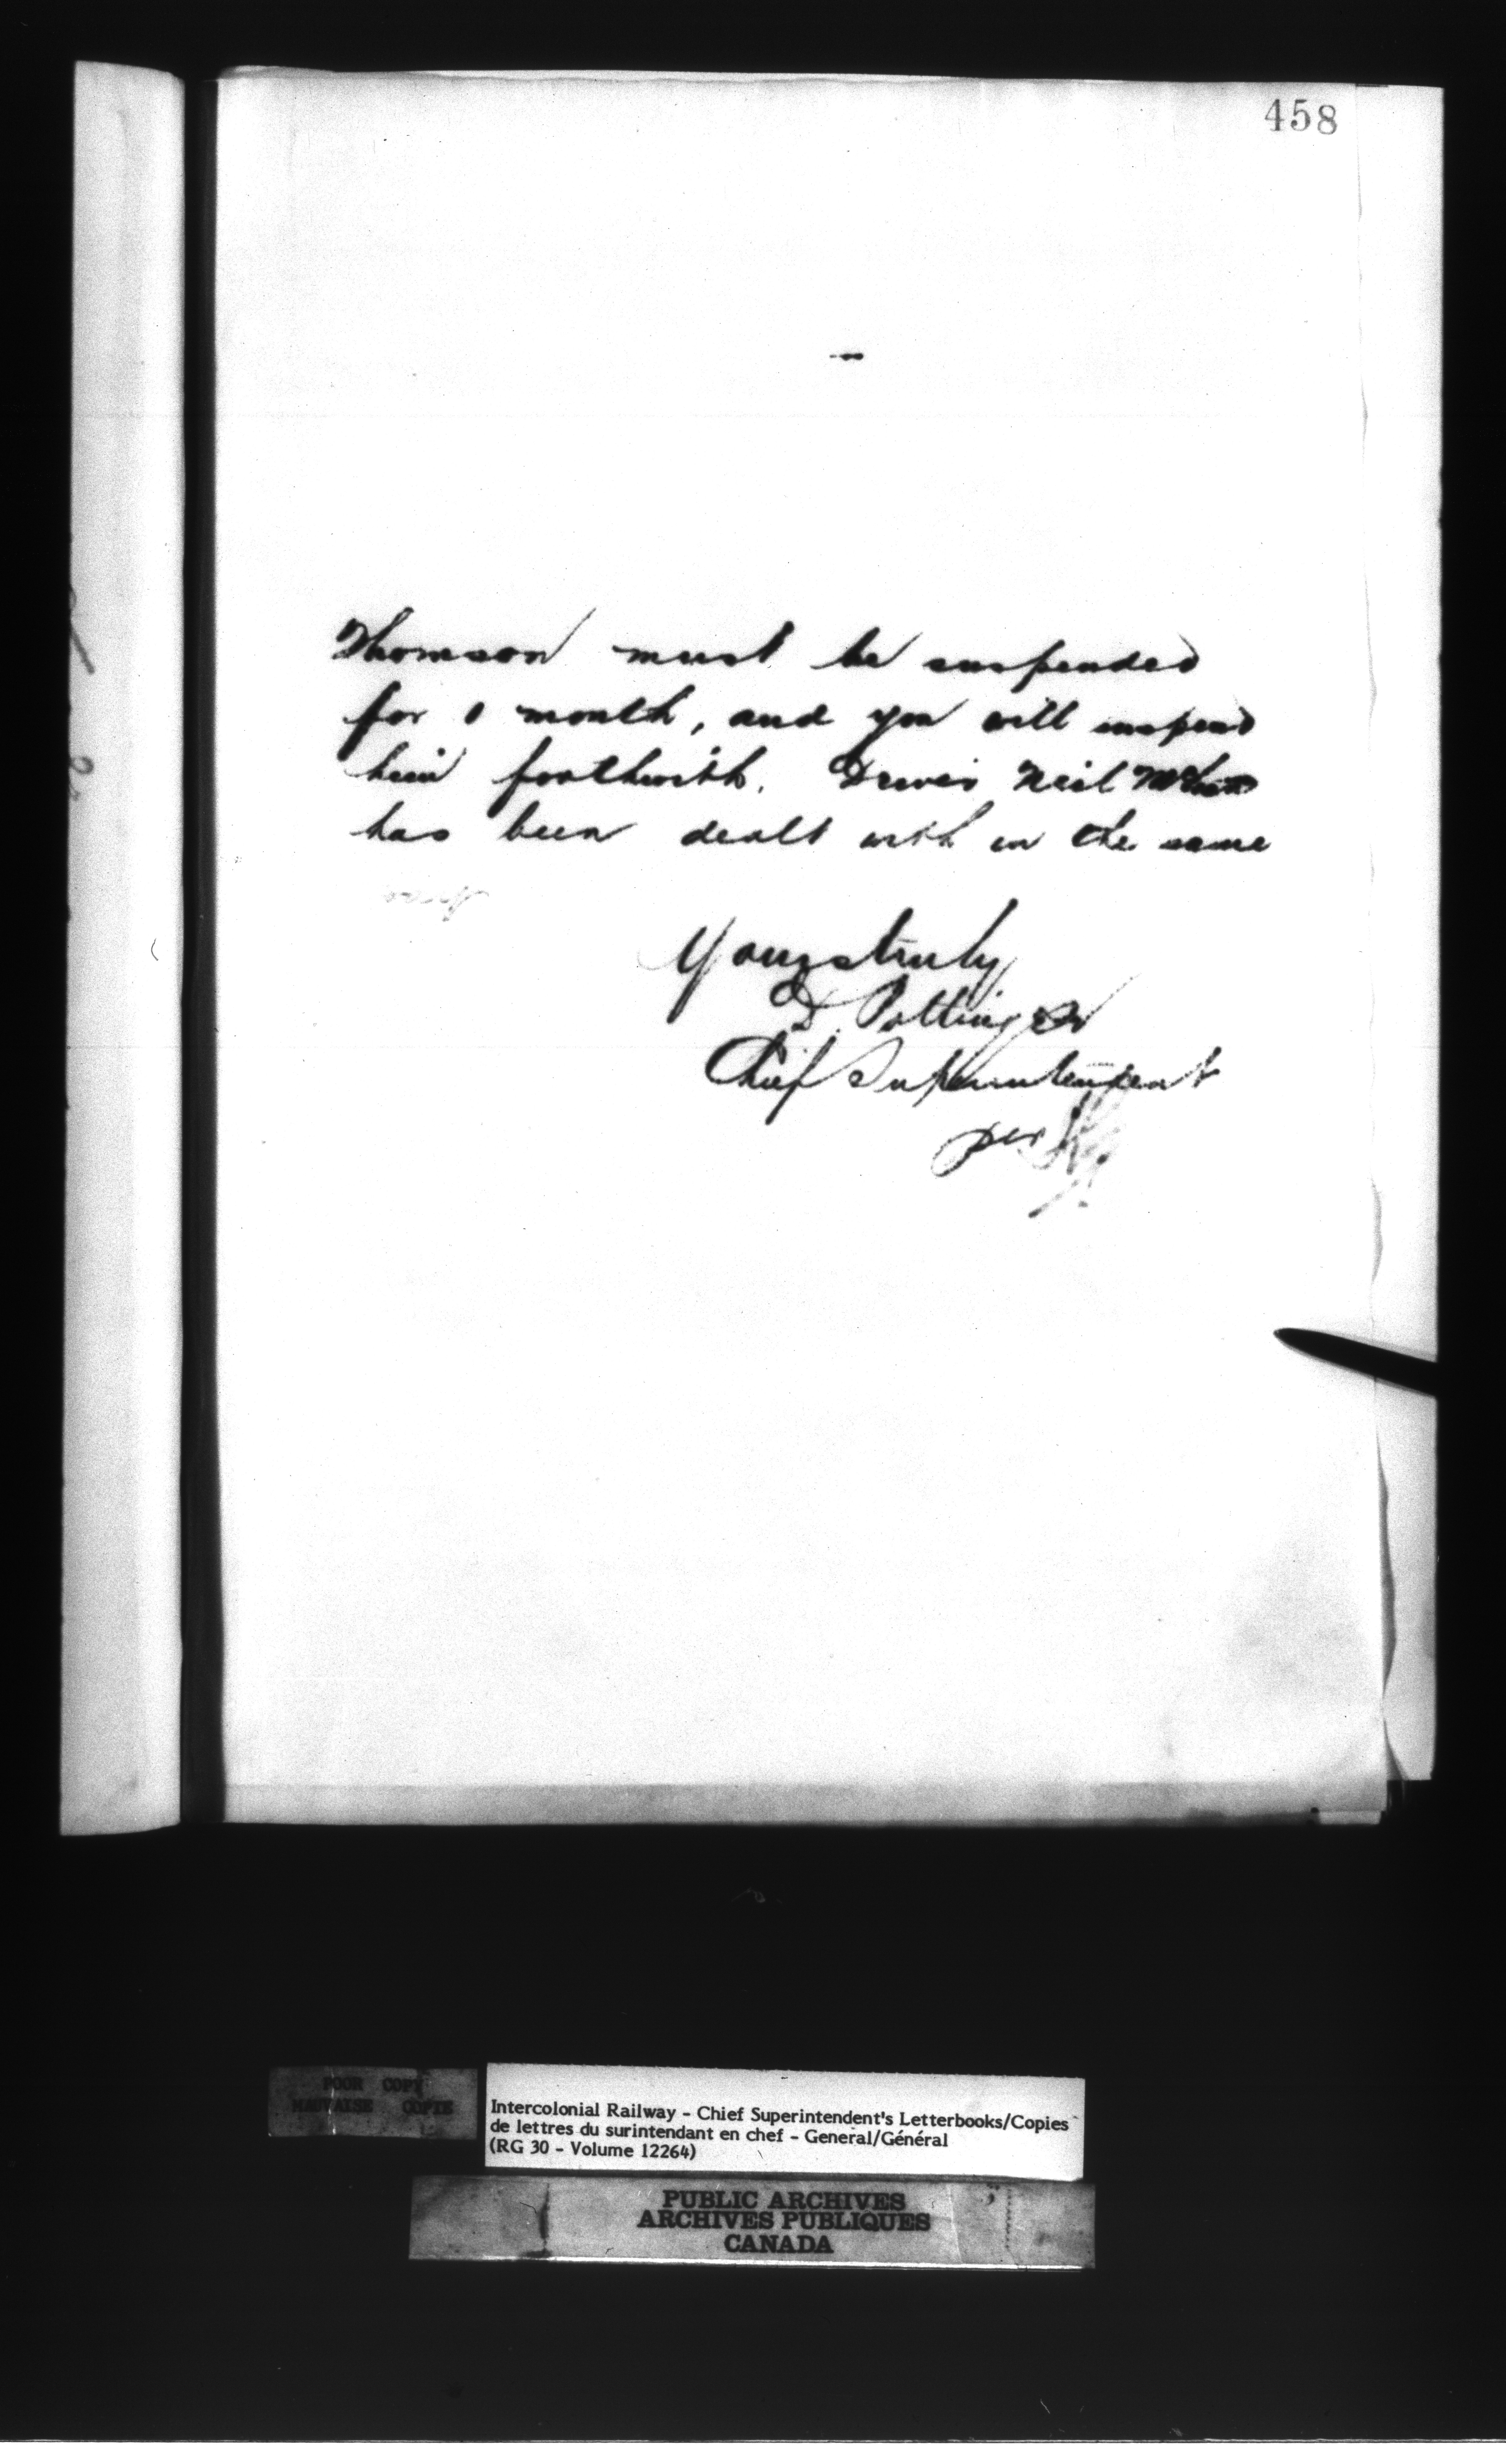 458
Thomson must be suspended
for 1 month, and you will suspend
him forthwith. Driver Neil
has been dealt with in the same
Yours truly
D. Pottinger
Chief Superintendent
per
POOR COPY
MAUVAISE COPIE
Intercolonial Railway - Chief Superintendent's Letterbooks/Copies
de lettres du surintendant en chef - General/Général
(RG 30 - Volume 12264)
PUBLIC ARCHIVES
ARCHIVES PUBLIQUES
CANADA